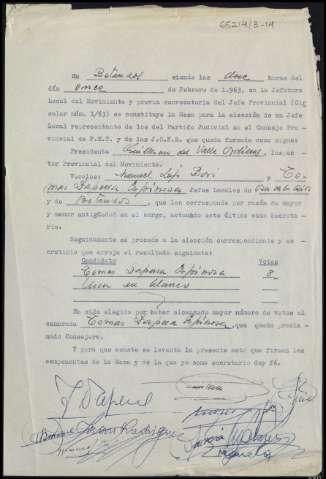 65214/3-14
En Betanzos siendo las doce horas del
día once de Febrero de 1.963, en Jefatura
Local del Movimiento y previa convocatoria del Jefe Provincial (Cir
cular núm. 1/63) se constituye la Mesa para la elección de un Jefe
Local representante de los del Partido Judicial en el Consejo Pro
vincial de F.E.T. y de las J.O.N.S. que queda formada como sigue:
Presidente Guillermo del Valle, Inspec-
tor Provincial del Movimiento.
Vocales: Manuel y To
mas Dapena Espinosa Jefes Locales de
y de Betanzos, que les corresponde por razón de mayor
y menor antigüedad en el cargo, actuando este último como Secreta-
rio.
Seguidamente se procede a la elección correspondiente y es-
crutinio que arroja el resultado siguiente:
Candidato Votos
Tomas Dapena Espinosa 8
Uno en blanco
Ha sido elegido por haber alcanzado mayor número de votos el
camarada Tomas Dapena Espinosa, que queda procla
mado Consejero.
Y para que conste se levanta la presente acta que firman los
componentes de la Mesa y de la que yo como secretario doy fé.